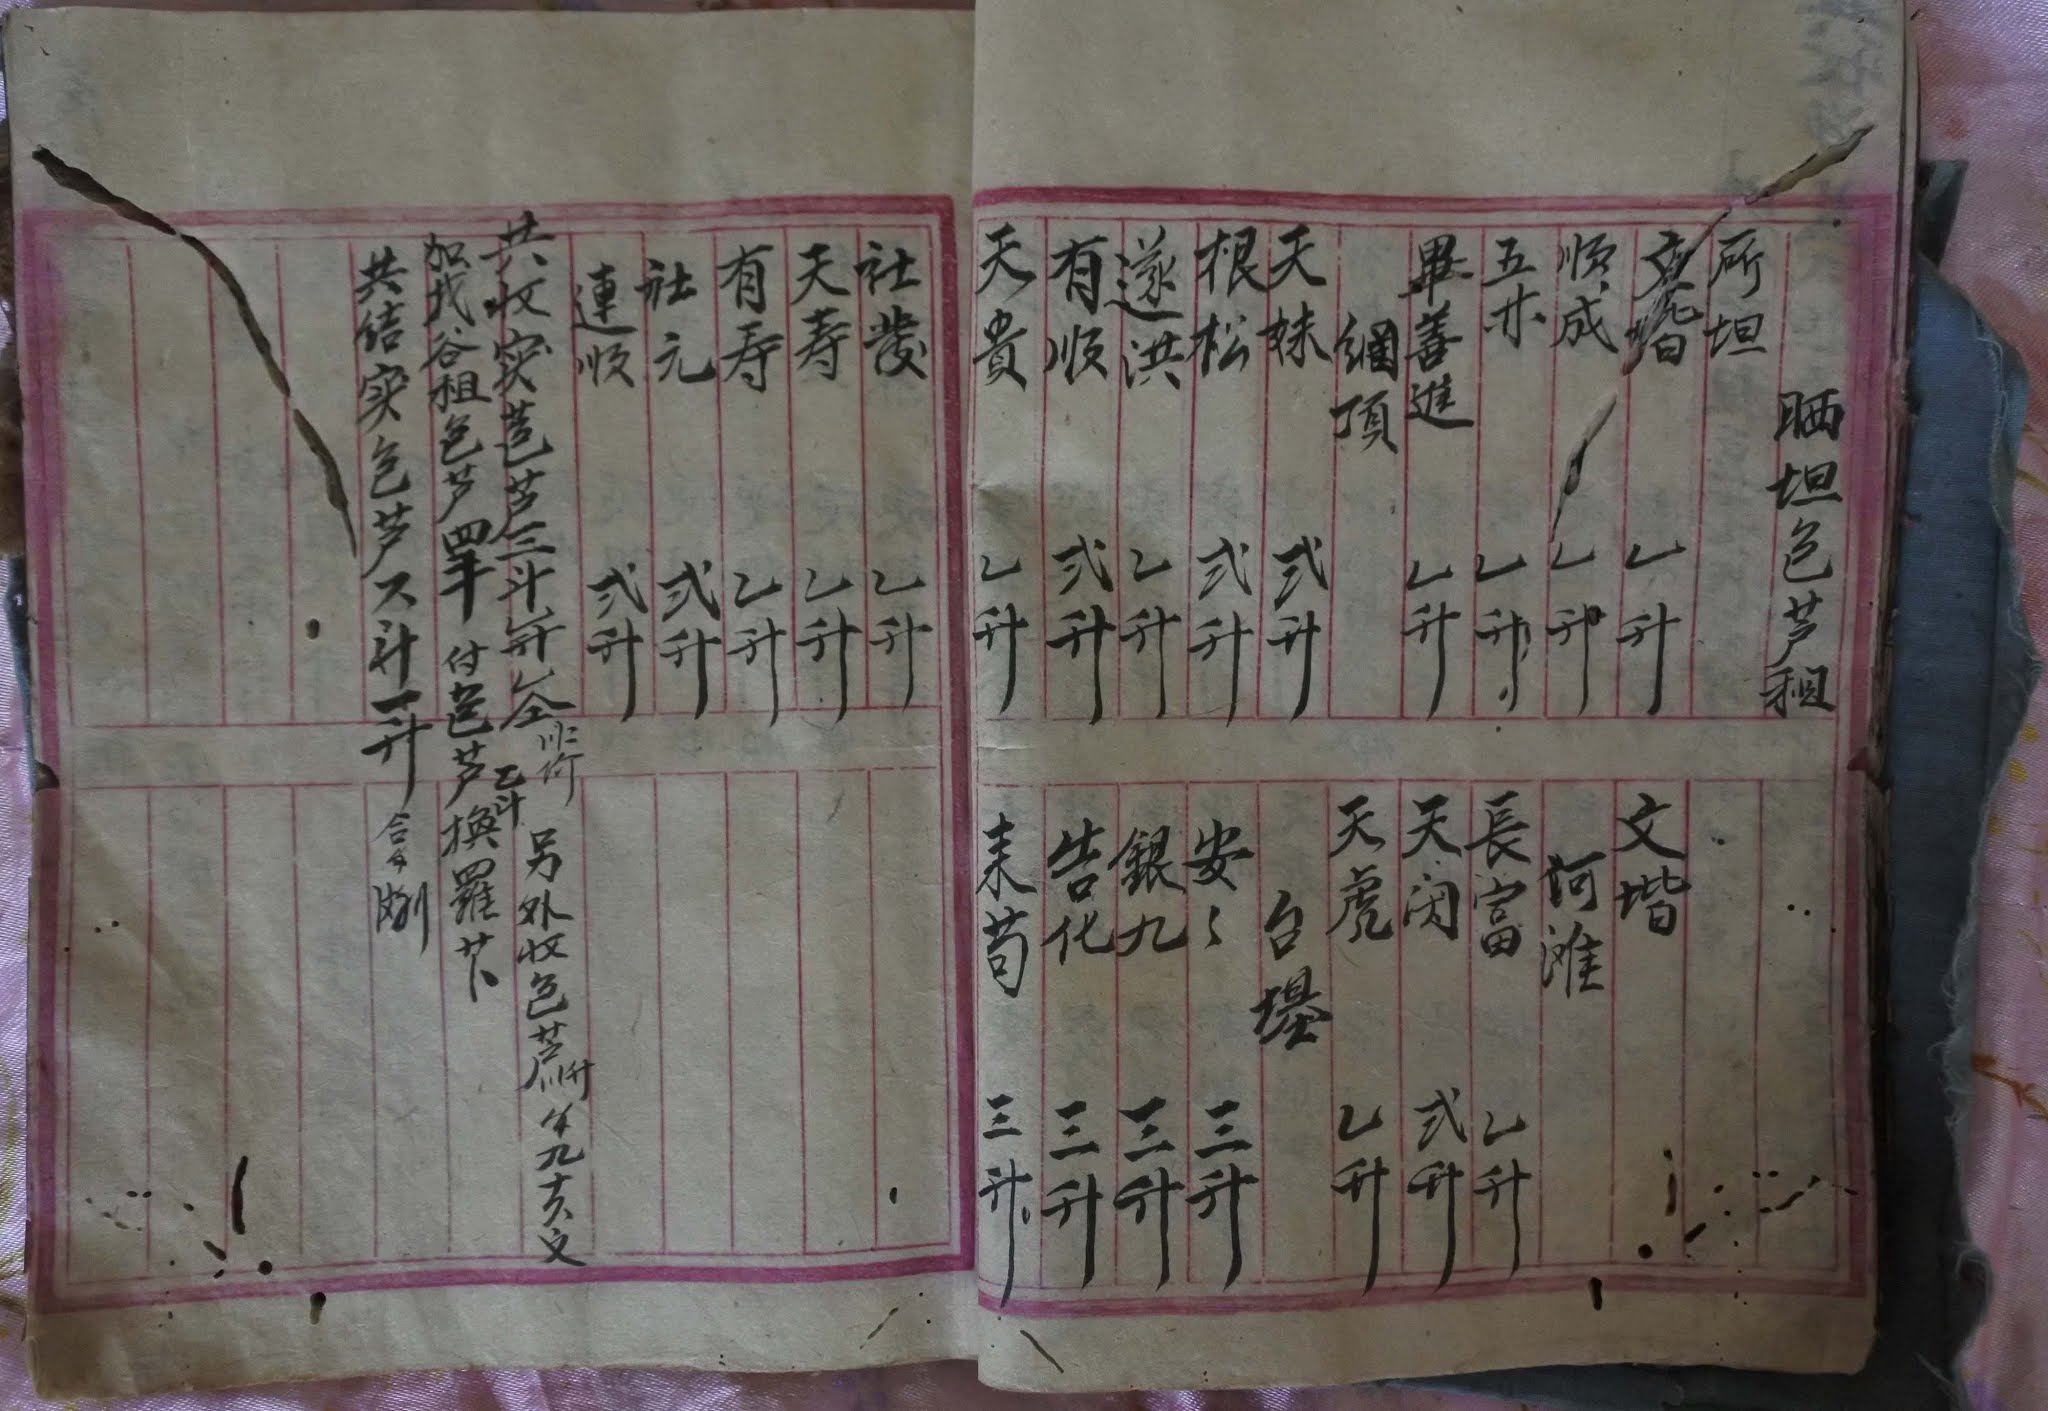 晒坦色芦租
所坦
文揩 乙升
順成 乙升
五亦 乙升
畢善進 乙升
綑頂
天妹 弍升
根松 弍升
遂洪 乙升
有順 弍升
天貴 乙升
文堦
河滩
長富 乙升
天闵 弍升
天虎 乙升
台堪
安〻 三升
銀九 三升
告化 三升
耒苟 三升
社發 乙升
天寿 乙升
有寿 乙升
社元 弍升
連順 弍升
共收实苞芦三斗
另外收色芦 九十六文
加找谷租色芦 付苞芦乙斗換羅卜
共结实色芦 斗一升